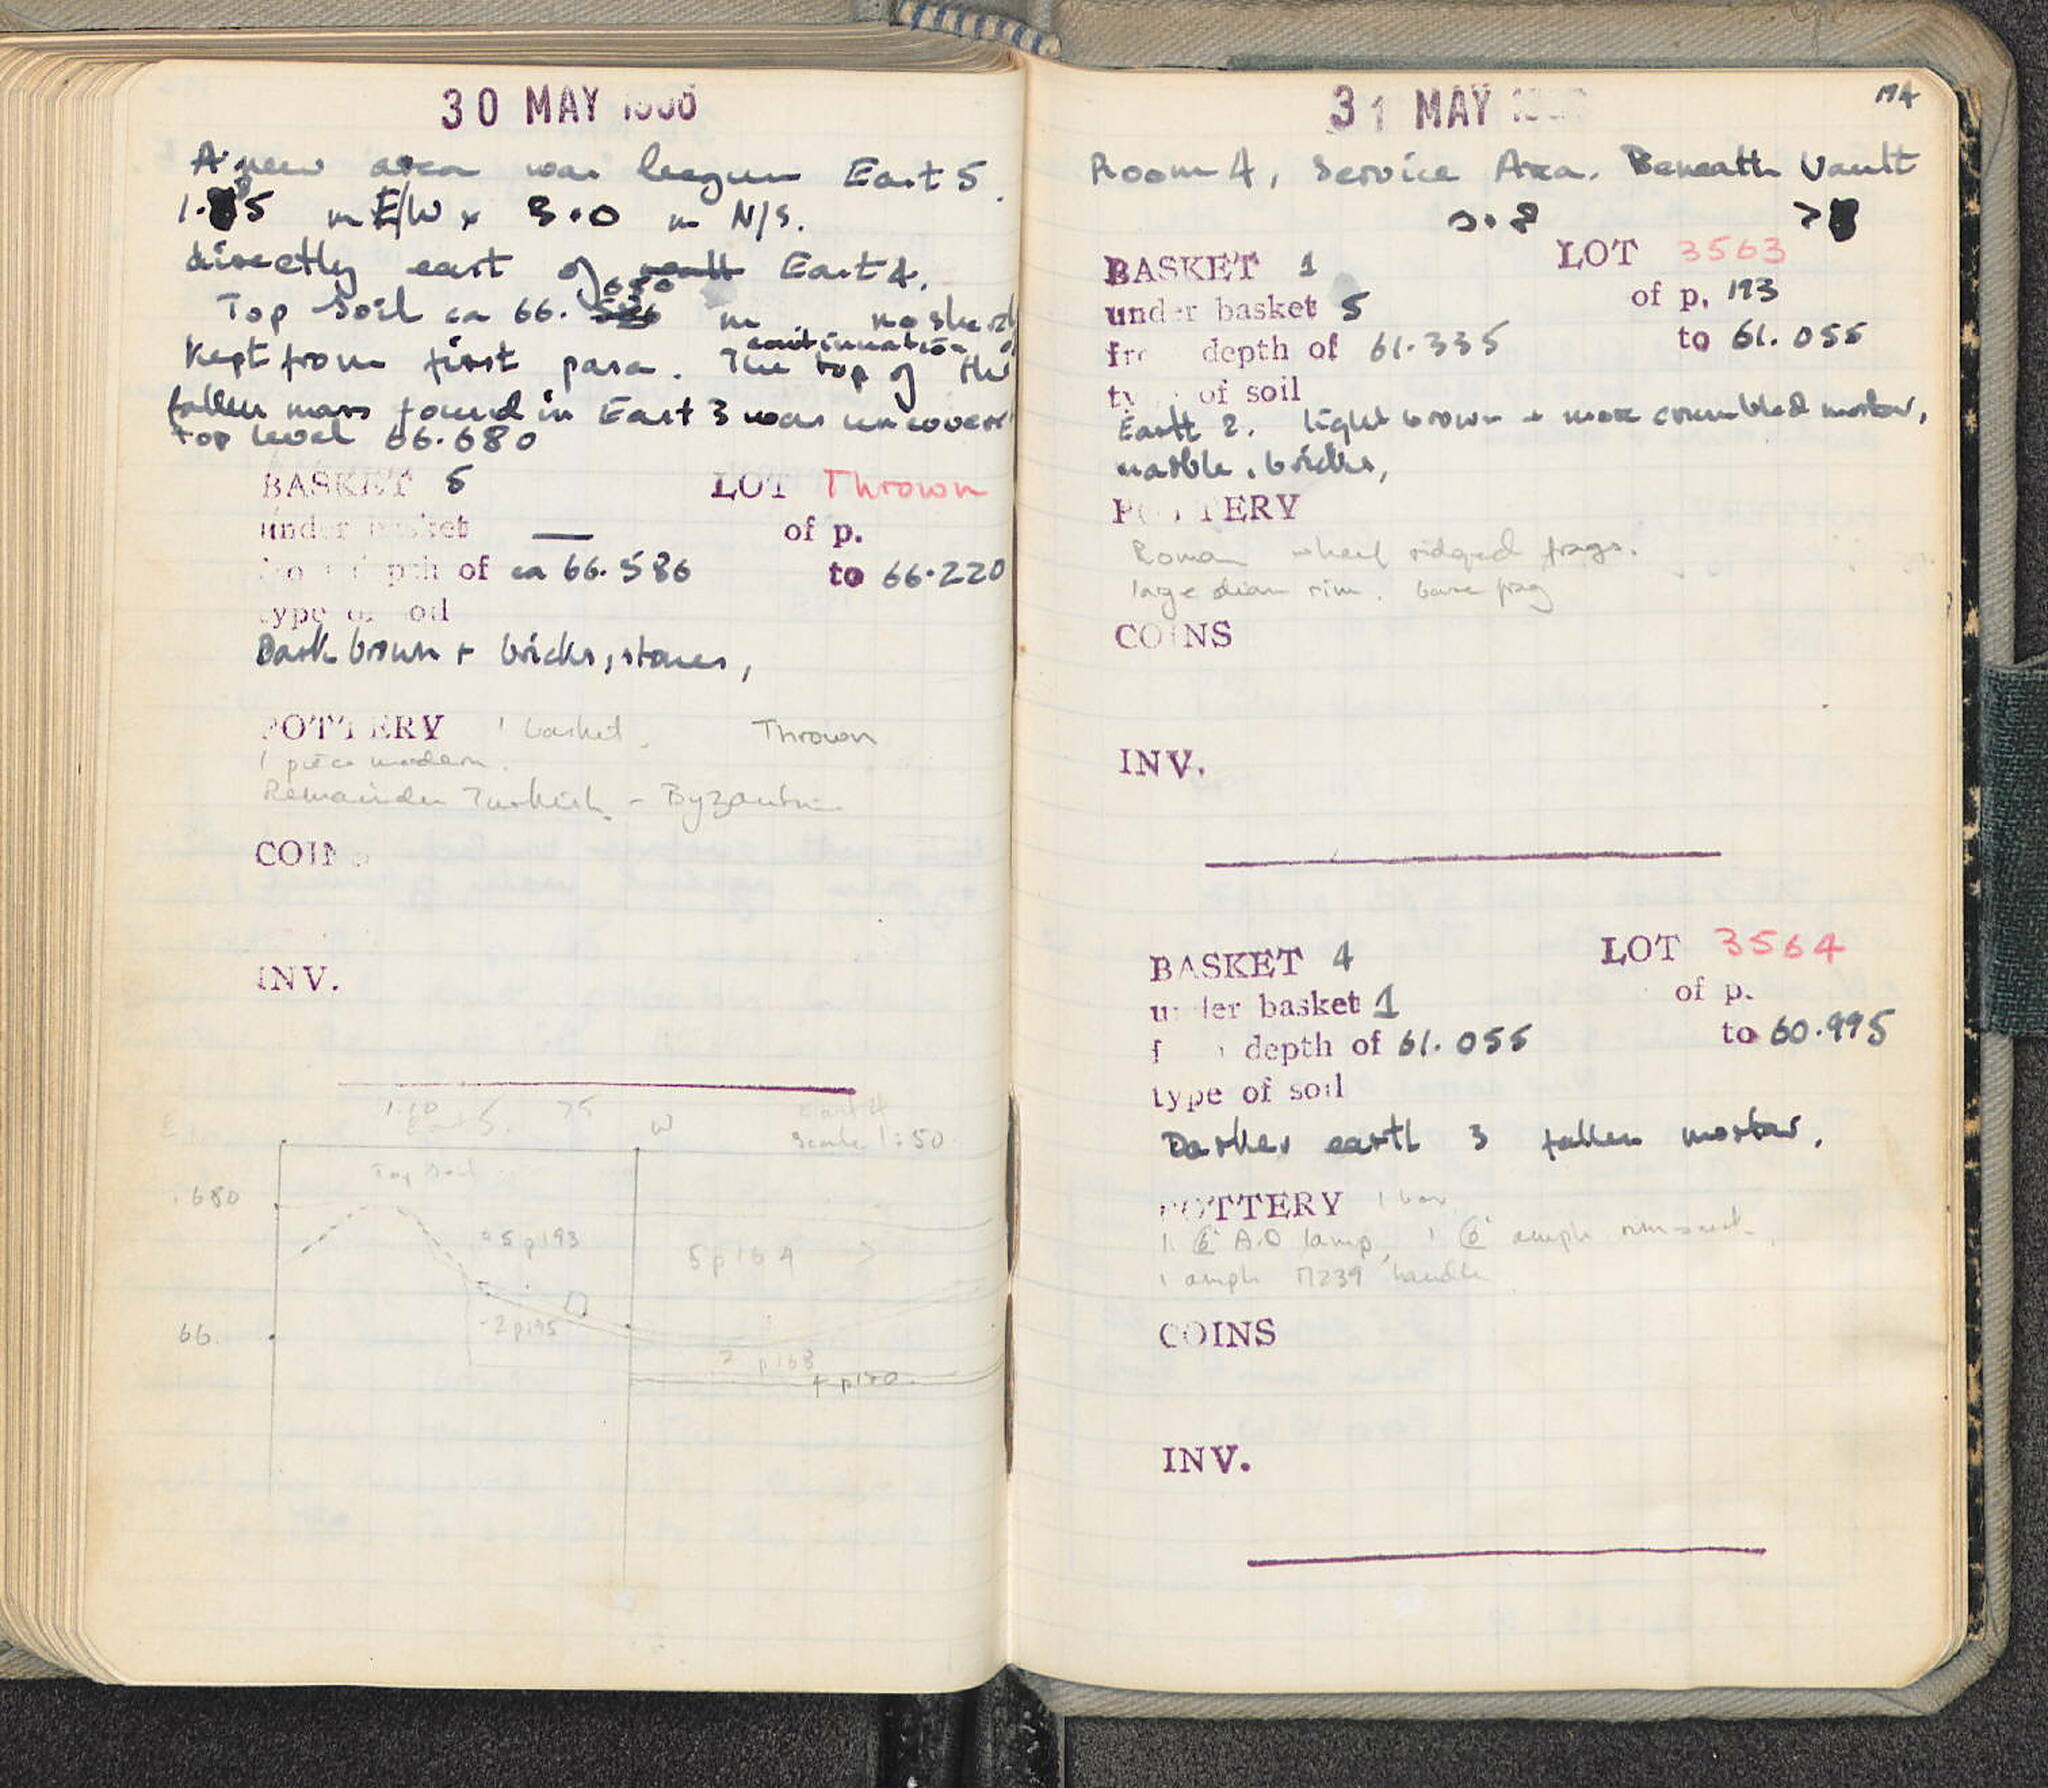 30 MAY
A new area was begun East 5.
1.85 m E/W x 3.0 m N/S.
directly east of vault East 4.
Top Soil ca 66.680 m no sherds
Kept from first pasa. The continuation of top of the
fallen mass found in East 3 was uncovered
top level 66.680
BASKET 5 LOT Thrown
under basket — of p.
from depth of ca 66.586 to 66.220
type of soil
Dark brown + bricks, stones,
POTTERY 1 basket. Thrown
1 piece modern.
Remainder Turkish - Byzantine
COINS
INV.
E 1.10 East 5. 75 W East 4
Scale 1:50
Top Soil
.680
5 p 193
5 p 164
66.
2 p195
2 p168
4 p180
31 MAY
194
Room 4, Service Area. Beneath Vault
BASKET 1 LOT 3563
under basket 5 of p. 193
from depth of 61.335 to 61.055
type of soil
East 2. light brown + more crumbled mortar,
marble, bricks,
POTTERY
Roman wheel ridged frags.
large diam rim. base frag
COINS
INV.
BASKET 4 LOT 3564
under basket 1 of p.
from depth of 61.055 to 60.995
type of soil
Darker earth 3 fallen mortar.
POTTERY 1 box
1 A.D lamp, 1 amph rim + neck,
1 amph M239 handle
COINS
INV.